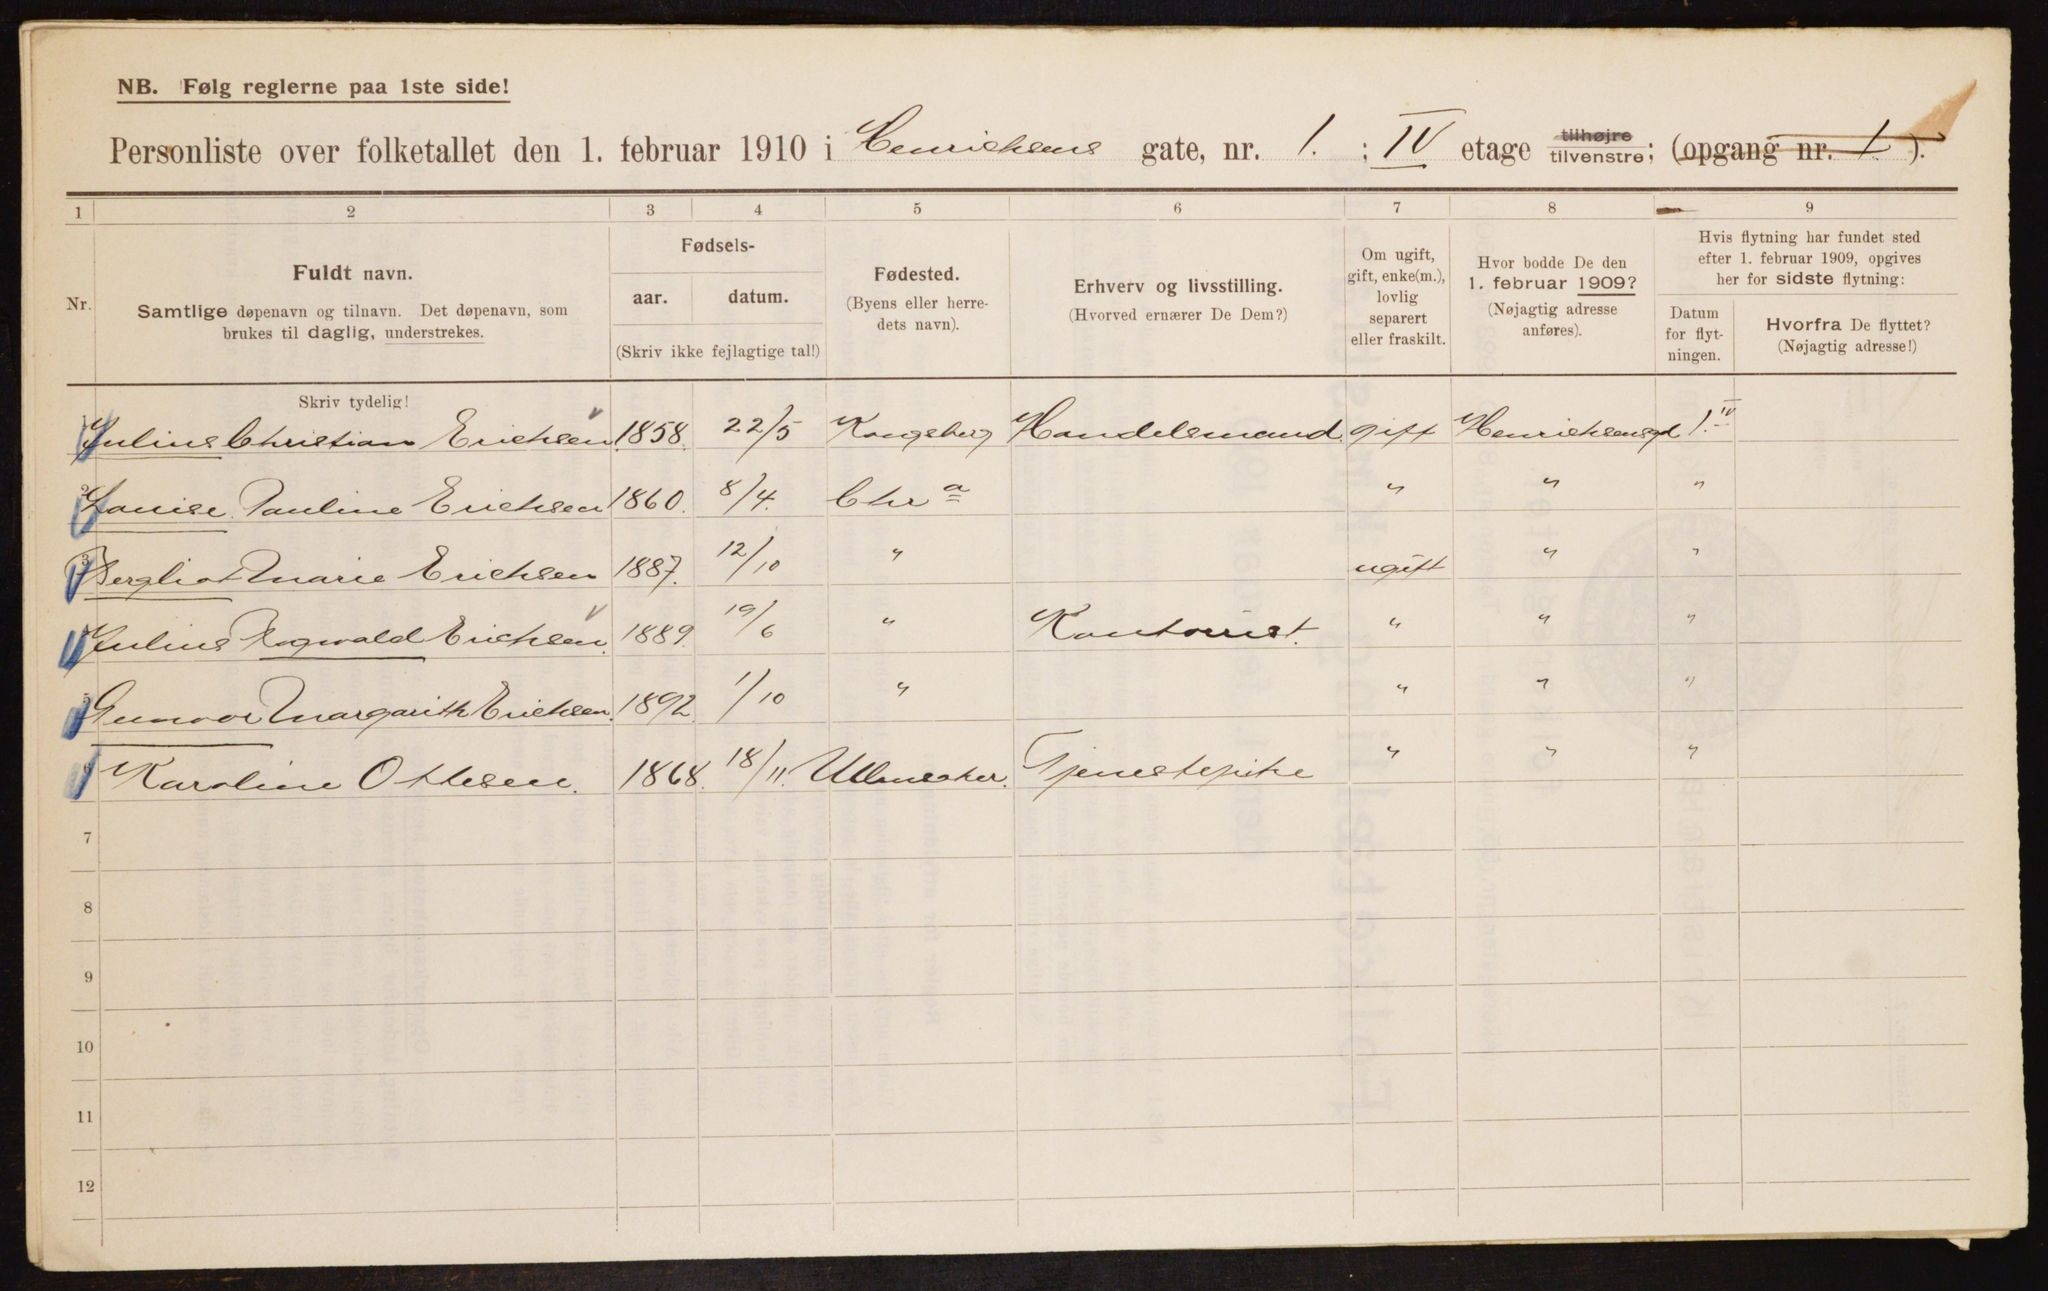 NB. Følg reglerne paa 1ste side!
Personliste over folketallet den 1. februar 1910 i Henrichsens gate, nr. 1. : IV etage tilhøjre tilvenstre; (opgang nr. 1 ).
1 2 3 4 5 6 7 8 9
Nr.
Fuldt navn.
Samtlige døpenavn og tilnavn. Det døpenavn, som
brukes til daglig, understrekes.
Fødsels-
aar. datum.
(Skriv ikke fejlagtige tal!)
Fødested.
(Byens eller herre-
dets navn).
Erhverv og livsstilling.
(Hvorved ernærer De Dem?)
Om ugift,
gift, enke(m.),
lovlig
separert
eller fraskilt.
Hvor bodde De den
1. februar 1909?
(Nøjagtig adresse
anføres).
Hvis flytning har fundet sted
efter 1. februar 1909, opgives
her for sidste flytning:
Datum
for flyt-
ningen.
Hvorfra De flyttet?
(Nøjagtig adresse!)
Skriv tydelig!
1 Julius Christian Erichsen 1858. 22/5 Kongsberg Handelsmand. gift Henrichsensgd 1. IV
2 Louise Pauline Erichsen 1860. 8/4. Chr a " " "
3 Bergliot Marie Erichsen 1887. 12/10 " ugift " "
4 Julius Ragwald Erichsen. 1889. 19/6 " Kontorist. " " "
5 Gunvor Margarith Erichsen. 1892. 1/10 " " " "
6 Karoline Ottesen. 1868. 18/11. Ullensaker. Tjenestepike " " "
7
8
9
10
11
12